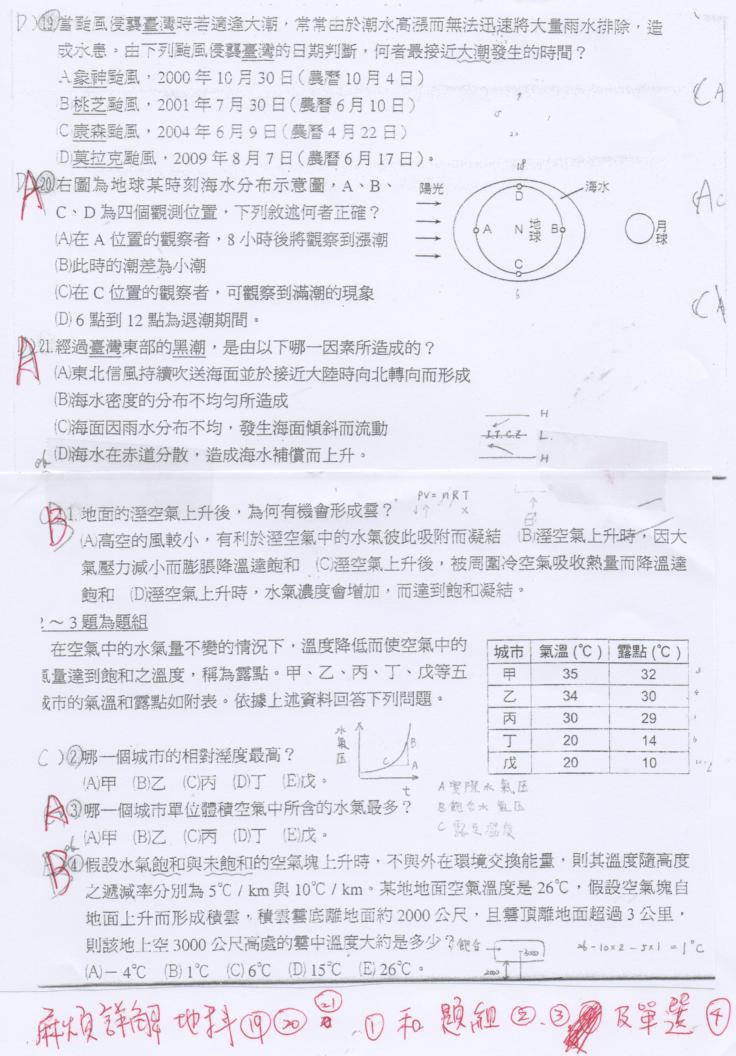 D )19.當颱風侵襲臺灣時若適逢大潮，常常由於潮水高漲而無法迅速將大量雨水排除，造
成水患。由下列颱風侵襲臺灣的日期判斷，何者最接近大潮發生的時間？
(A)象神颱風，2000年10月30日(農曆10月4日)
(B)桃芝颱風，2001年7月30日(農曆6月10日)
(C)康森颱風，2004年6月9日(農曆4月22日)
(D)莫拉克颱風，2009年8月7日(農曆6月17日)。
CA
A 20.右圖為地球某時刻海水分布示意圖，A、B、
C、D為四個觀測位置，下列敘述何者正確？
(A)在A位置的觀察者，8小時後將觀察到漲潮
(B)此時的潮差為小潮
(C)在C位置的觀察者，可觀察到滿潮的現象
(D) 6點到12點為退潮期間。
18
陽光
海水
D
A N 地球 B
月球
C
6
AC
CA
A 21.經過臺灣東部的黑潮，是由以下哪一因素所造成的？
(A)東北信風持續吹送海面並於接近大陸時向北轉向而形成
(B)海水密度的分布不均勻所造成
(C)海面因雨水分布不均，發生海面傾斜而流動
(D)海水在赤道分散，造成海水補償而上升。
H
I.T.C.Z L.
H
PV=nRT
B 1.地面的溼空氣上升後，為何有機會形成雲？
(A)高空的風較小，有利於溼空氣中的水氣彼此吸附而凝結 (B)溼空氣上升時，因大
氣壓力減小而膨脹降溫達飽和 (C)溼空氣上升後，被周圍冷空氣吸收熱量而降溫達
飽和 (D)溼空氣上升時，水氣濃度會增加，而達到飽和凝結。
2～3題為題組
在空氣中的水氣量不變的情況下，溫度降低而使空氣中的
氣量達到飽和之溫度，稱為露點。甲、乙、丙、丁、戊等五
城市的氣溫和露點如附表。依據上述資料回答下列問題。
城市 氣溫(℃) 露點(℃)
甲 35 32
乙 34 30
丙 30 29
丁 20 14
戊 20 10
C )2.哪一個城市的相對溼度最高？
(A)甲 (B)乙 (C)丙 (D)丁 (E)戊。
水氣压
B
C A
t
A 實際水氣压
B 飽和水氣压
C 露點溫度
A 3.哪一個城市單位體積空氣中所含的水氣最多？
(A)甲 (B)乙 (C)丙 (D)丁 (E)戊。
B 4.假設水氣飽和與未飽和的空氣塊上升時，不與外在環境交換能量，則其溫度隨高度
之遞減率分別為5℃/km與10℃/km。某地地面空氣溫度是26℃，假設空氣塊自
地面上升而形成積雲，積雲雲底離地面約2000公尺，且雲頂離地面超過3公里，
則該地上空3000公尺高處的雲中溫度大約是多少？
(A)－4℃ (B) 1℃ (C) 6℃ (D) 15℃ (E) 26℃。
飽和
3000
2000
26-10×2-5×1=1℃
麻煩詳解 地科 19 20 21 1 和 題組 2、3 及單選 4